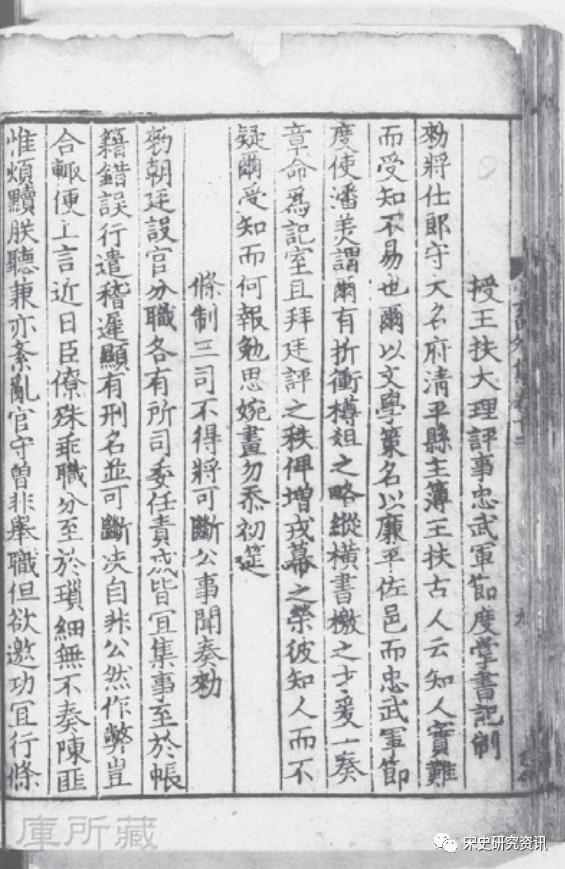 授王扶大理評事忠武軍節度掌書記制
勑將仕郎守大名府清平縣主簿王扶古人云知人實難
而受知不易也爾以文學策名以廉平佐邑而忠武軍節
度使潘美謂爾有折衝樽俎之略縱橫書檄之才爰一奏
章命爲記室且拜廷評之秩俾增戎幕之榮彼知人而不
疑爾受知而何報勉思婉畫勿忝初筵
條制三司不得將可斷公事聞奏勑
勑朝廷設官分職各有所司委任責成皆冝集事至於帳
籍錯誤行遣稽遲顯有刑名並可斷决自非公然作弊豈
合輒便上言近日臣僚殊乖職分至於瑣細無不奏陳匪
惟煩黷朕聽兼亦紊亂官守曾非舉職但欲邀功冝行條
庫所藏
宋史研究资讯